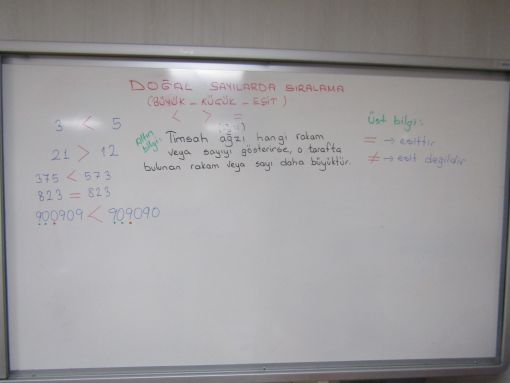 DOĞAL SAYILARDA SIRALAMA
(BÜYÜK - KÜÇÜK - EŞİT)
< > =
3 < 5
21 > 12
375 < 573
823 = 823
900909 < 909090
Altın bilgi:
Timsah ağzı hangi rakam
veya sayıyı gösterirse, o tarafta
bulunan rakam veya sayı daha büyüktür.
Üst bilgi:
= → eşittir
≠ → eşit değildir